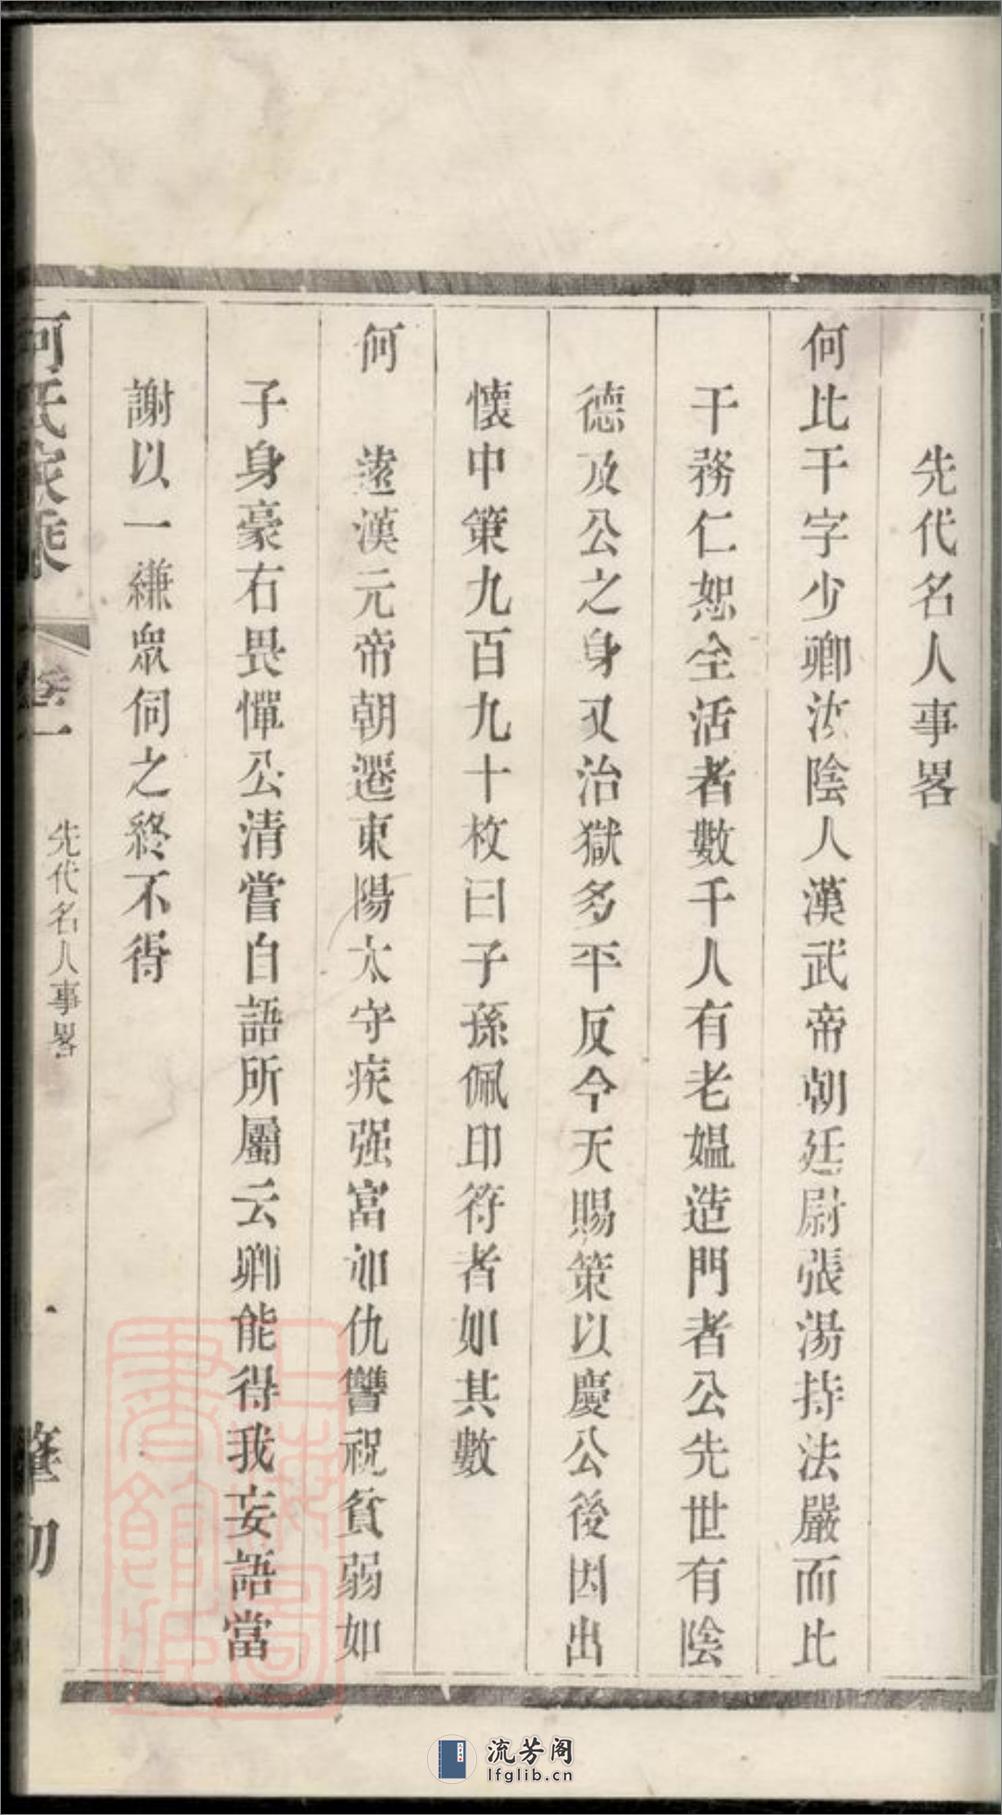 先代名人事畧
何比干字少卿汝陰人漢武帝朝廷尉張湯持法嚴而比
干務仁恕全活者數千人有老媼造門者公先世有陰
德及公之身又治獄多平反今天賜策以慶公後因出
懷中策九百九十枚曰子孫佩印符者如其數
何　遠漢元帝朝遷東陽太守疾强富如仇讐視貧弱如
子身豪右畏憚公清嘗自語所屬云卿能得我妄語當
謝以一縑眾伺之終不得
何氏家乘
卷一
先代名人事畧
一
肇初
流芳阁
lfglib.cn